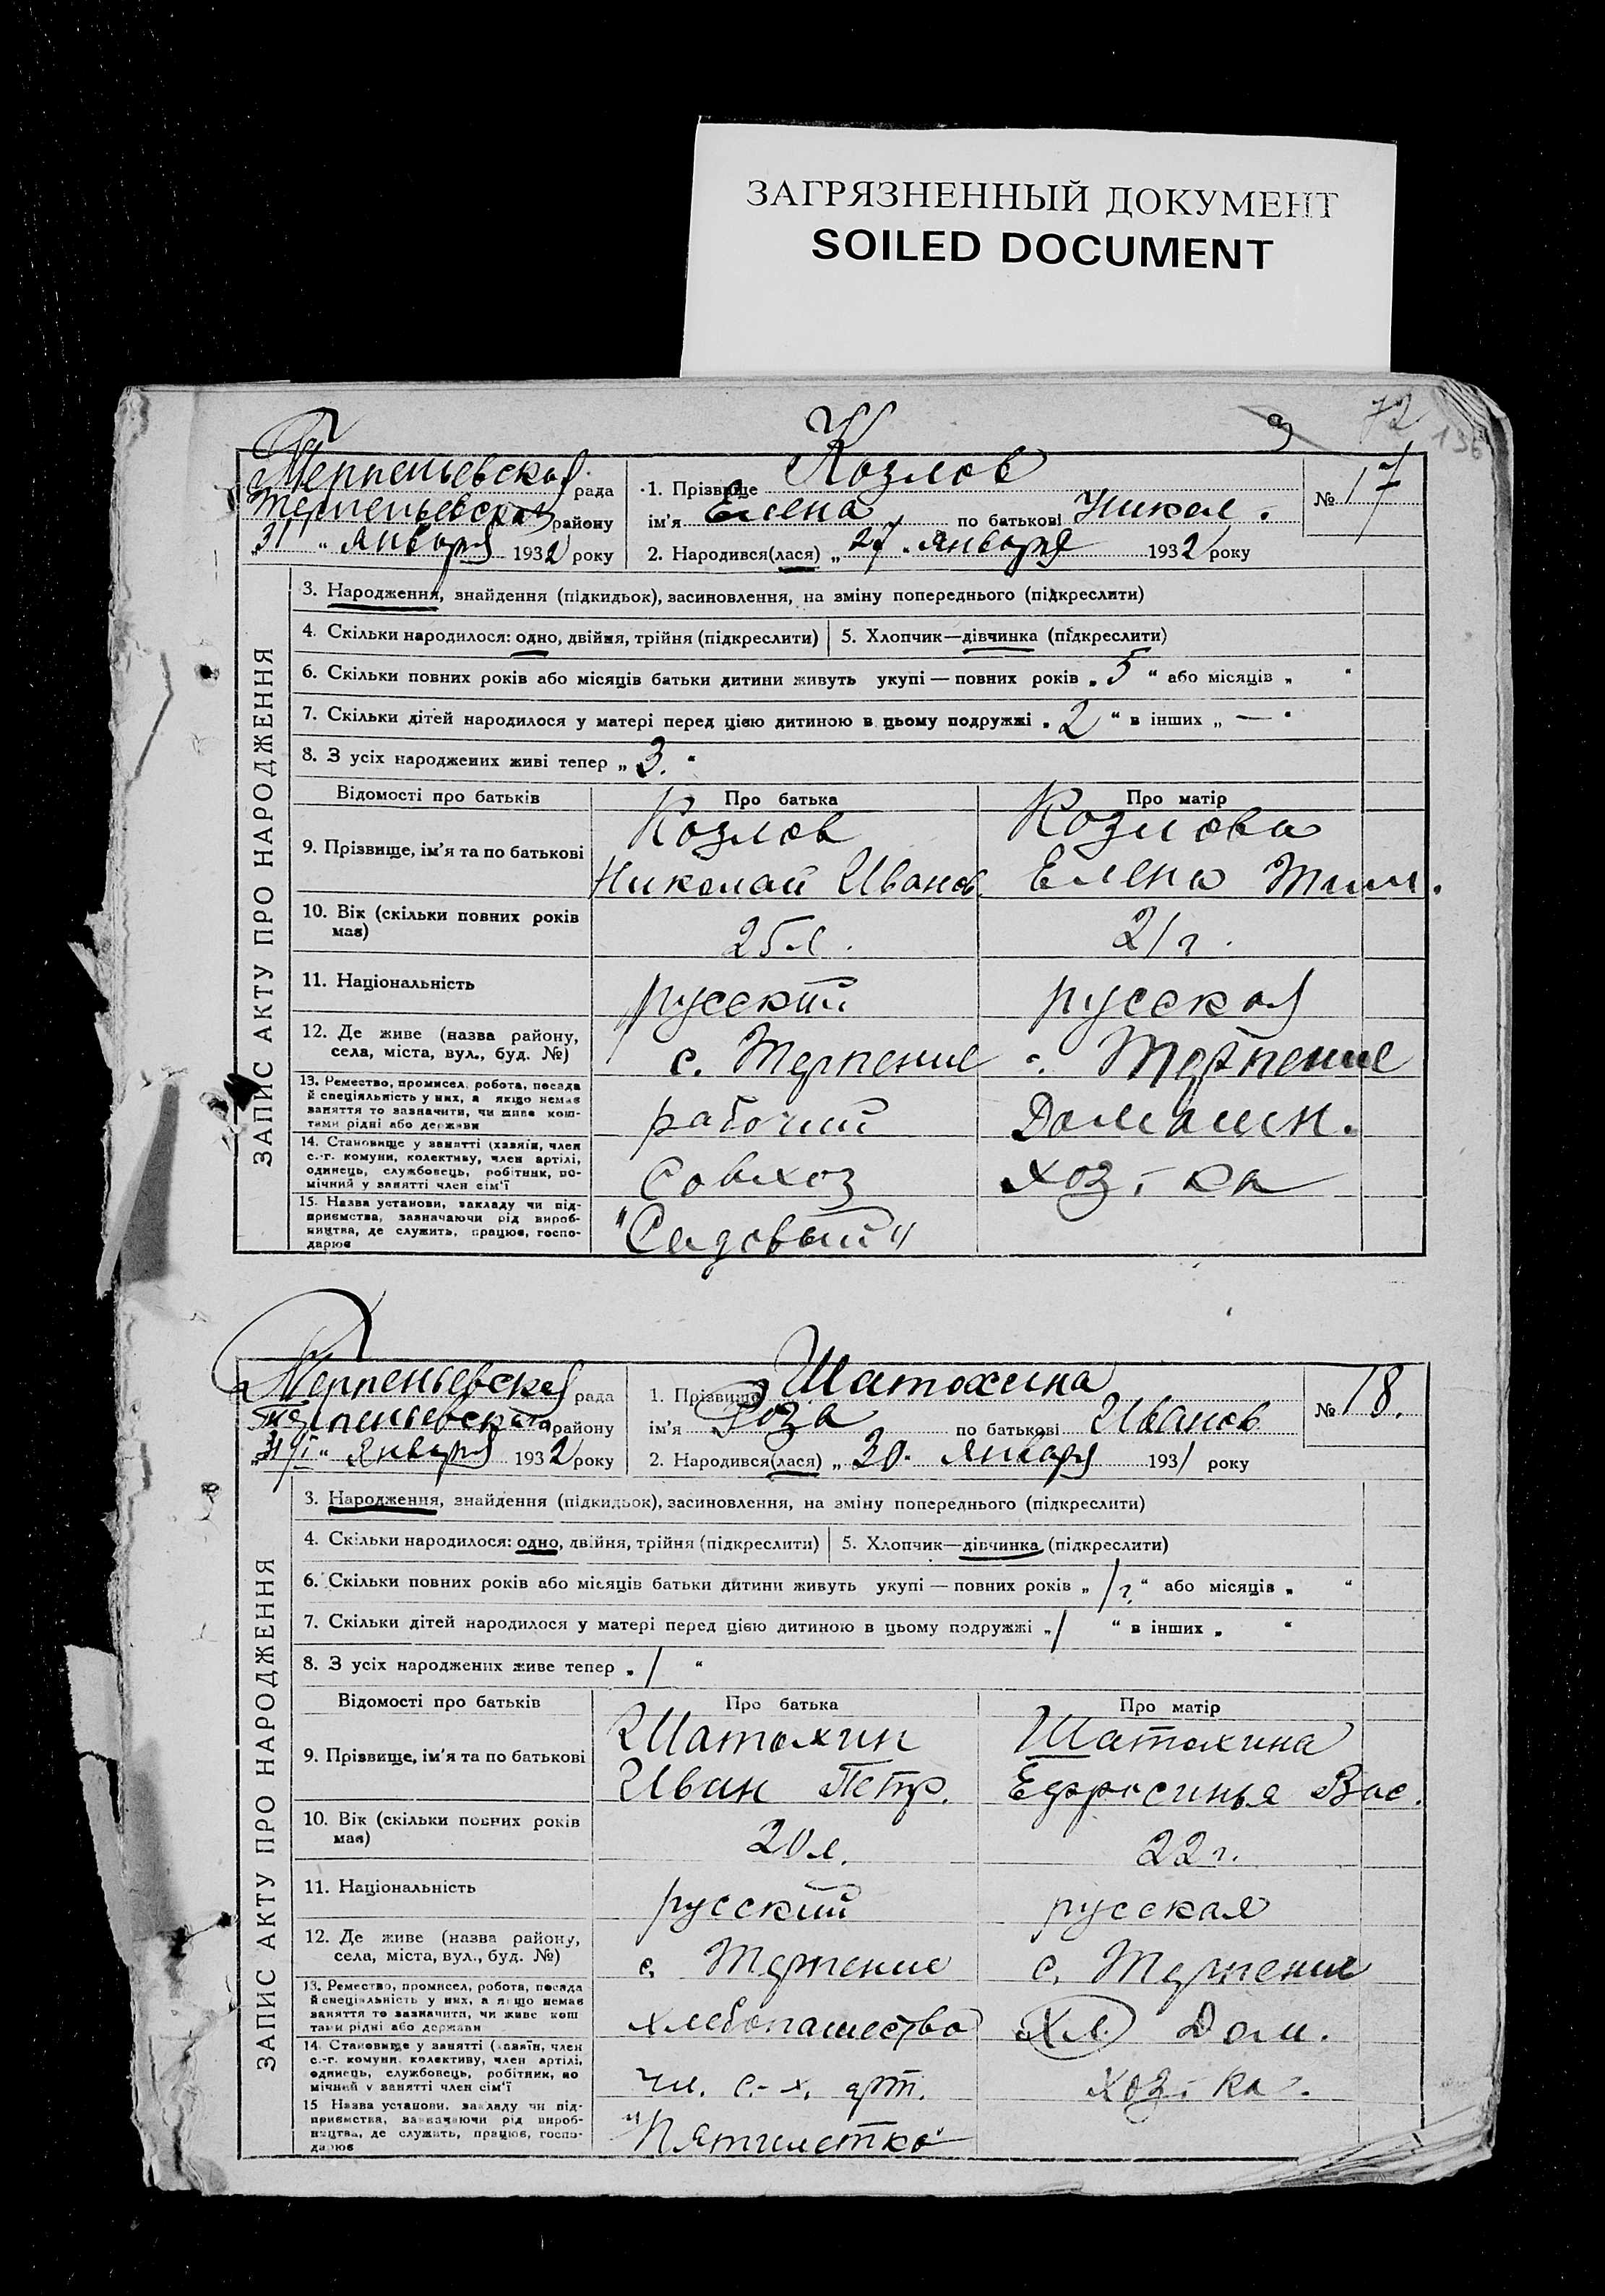 ЗАГРЯЗНЕННЫЙ ДОКУМЕНТ
SOILED DOCUMENT
72
136
Терпеньевская рада
Терпеньевского району
„31“ Января 1932 року
1. Прізвище Козлов
ім'я Елена по батькові Никол.
2. Народився(лася) „27“ Января 1932 року
№ 17
ЗАПИС АКТУ ПРО НАРОДЖЕННЯ
3. Народження, знайдення (підкидьок), засиновлення, на зміну попереднього (підкреслити)
4. Скільки народилося: одно, двійня, трійня (підкреслити) 5. Хлопчик—дівчинка (підкреслити)
6. Скільки повних років або місяців батьки дитини живуть укупі — повних років „5“ або місяців „ “
7. Скільки дітей народилося у матері перед цією дитиною в цьому подружжі „2“ в інших „—“
8. З усіх народжених живі тепер „3.“
Відомості про батьків Про батька Про матір
9. Прізвище, ім'я та по батькові
Козлов
Николай Иванов
Козлова
Елена Тим.
10. Вік (скільки повних років
має)
25 л.
21 г.
11. Національність русский русская
12. Де живе (назва району,
села, міста, вул., буд. №)
с. Терпение
с. Терпение
13. Ремество, промисел, робота, посада
й спеціяльність у них, а якщо немає
заняття то зазначити, чи живе кош-
тами рідні або держави
рабочий
Домашн.
14. Становище у занятті (хазяїн, член
с.-г. комуни, колективу, член артілі,
одинець, службовець, робітник, по-
мічний у занятті член сім'ї
Совхоз
хоз-ка
15. Назва установи, закладу чи під-
приємства, зазначаючи рід вироб-
ництва, де служить, працює, госпо-
дарює
"Садовый"
Терпеньевская рада
Терпеньевского району
„31/I“ Января 1932 року
1. Прізвище Шатохина
ім'я Роза по батькові Иванов
2. Народився(лася) „30. Января 1931 року
№ 18.
ЗАПИС АКТУ ПРО НАРОДЖЕННЯ
3. Народження, знайдення (підкидьок), засиновлення, на зміну попереднього (підкреслити)
4. Скільки народилося: одно, двійня, трійня (підкреслити) 5. Хлопчик—дівчинка (підкреслити)
6. Скільки повних років або місяців батьки дитини живуть укупі — повних років „1 г.“ або місяців „ “
7. Скільки дітей народилося у матері перед цією дитиною в цьому подружжі „1 “ в інших „ “
8. З усіх народжених живе тепер „1 “
Відомості про батьків Про батька Про матір
9. Прізвище, ім'я та по батькові
Шатохин
Иван Петр.
Шатохина
Ефросинья Вас.
10. Вік (скільки повних років
має)
20 л.
22 г.
11. Національність русский русская
12. Де живе (назва району,
села, міста, вул., буд. №)
с. Терпение
с. Терпение
13. Ремество, промисел, робота, посада
й спеціяльність у них, а якщо немає
заняття то зазначити, чи живе кош
тами рідні або держави
хлебопашество
Хл. Дом.
14. Становище у занятті (хазяїн, член
с.-г. комуни, колективу, член артілі,
одинець, службовець, робітник, по
мічний у занятті член сім'ї
чл. с.-х. арт.
хоз-ка.
15 Назва установи, закладу чи під-
приємства, зазначаючи рід вироб-
ництва, де служить, працює, госпо-
дарює
"Пятилетка"